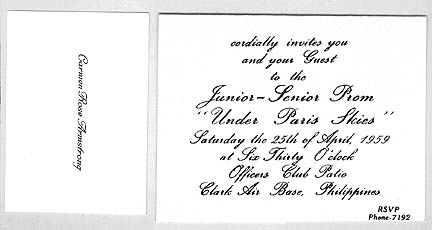 Carmon Rose Armstrong
cordially invites you
and your Guest
to the
Junior-Senior Prom
"Under Paris Skies"
Saturday the 25th of April, 1959
at Six Thirty O'clock
Officers Club Patio
Clark Air Base, Philippines
RSVP
Phone-7192